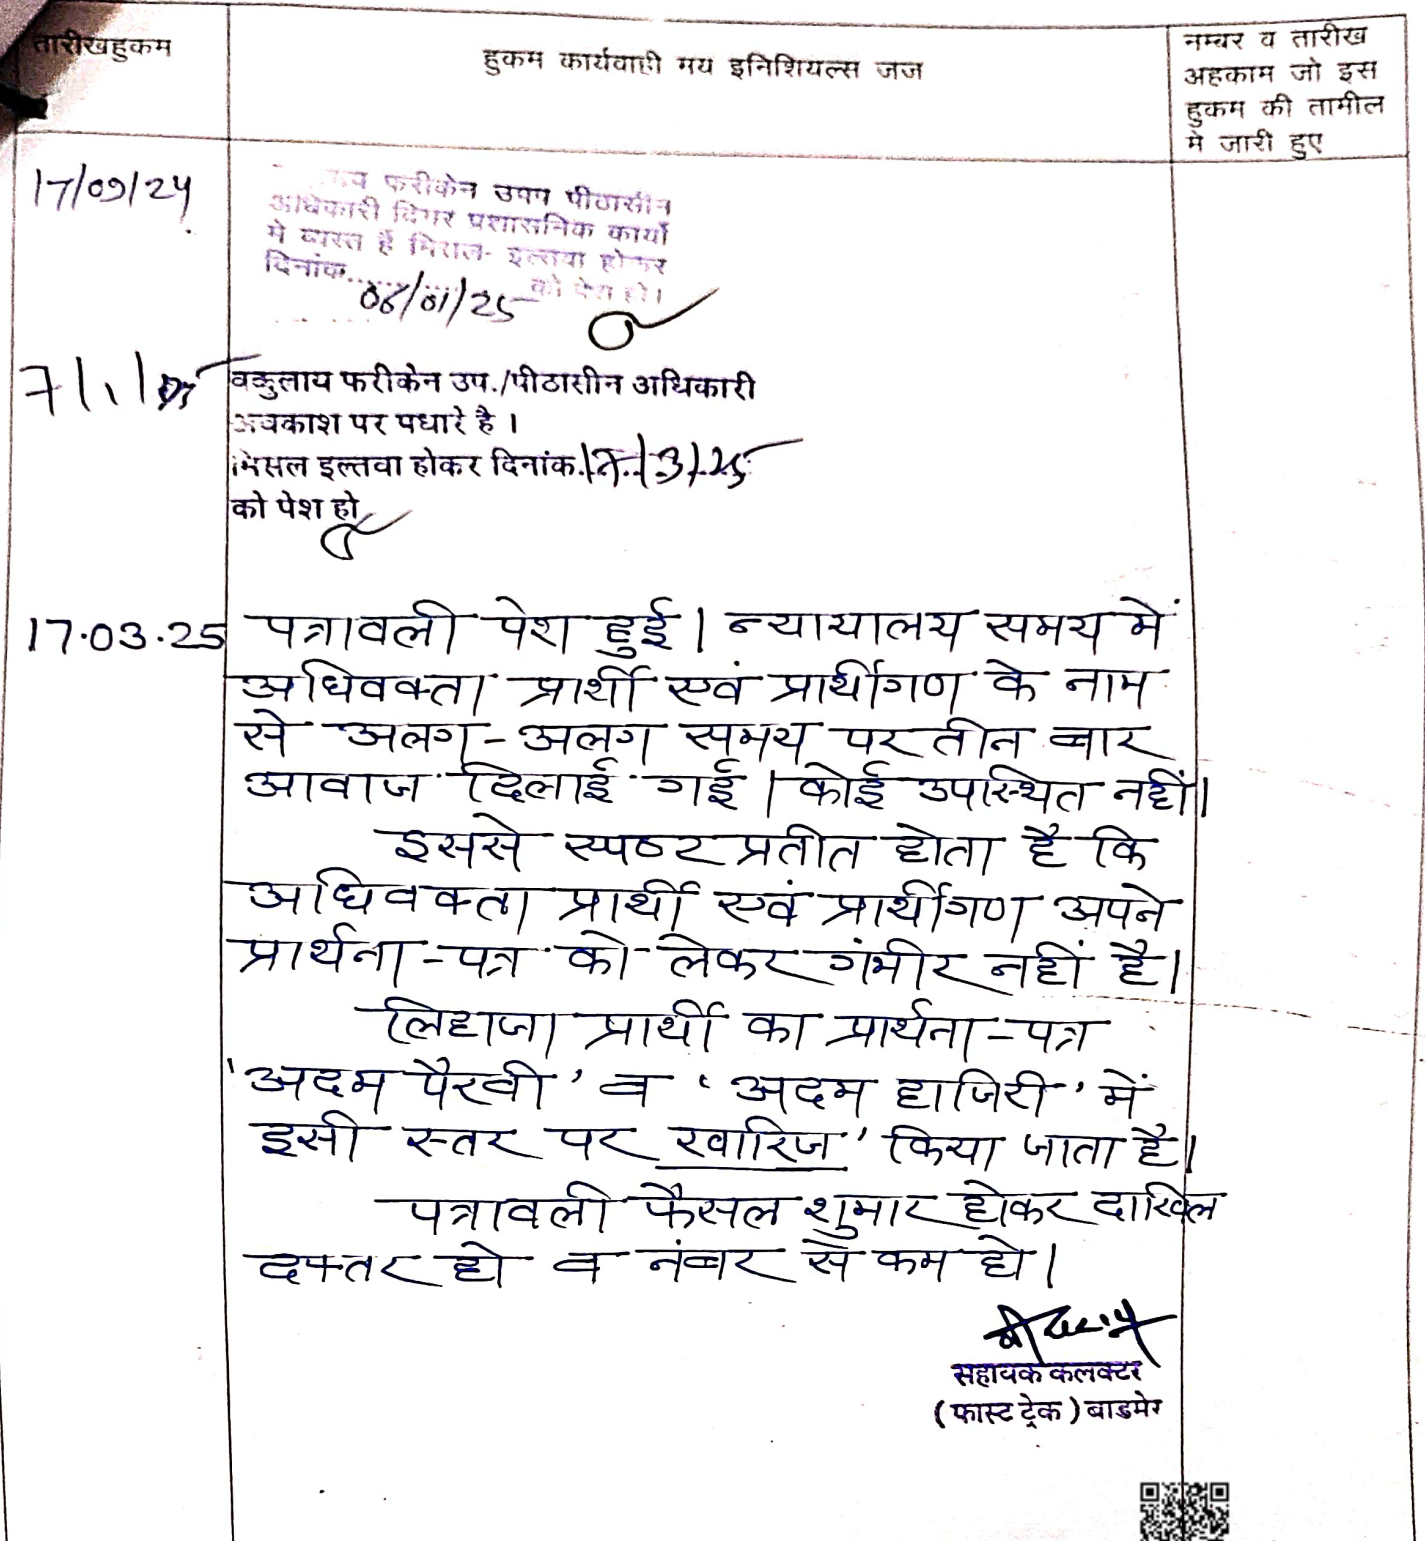 तारीखहुकम
हुकम कार्यवाही मय इनिशियल्स जज
नम्बर व तारीख
अहकाम जो इस
हुकम की तामील
मे जारी हुए
17/09/24
फरीकेन उपप पीठासीन
अधिकारी दिगर प्रशासनिक कार्यो
मे व्यस्त हैं मिसल- इल्तवा होकर
दिनांक........... को पेश हो।
/01/25
7/1/25
वकुलाय फरीकेन उप./पीठासीन अधिकारी
अवकाश पर पधारे है ।
मिसल इल्तवा होकर दिनांक.17/3/25
को पेश हो
17.03.25
पत्रावली पेश हुई। न्यायालय समय में
अधिवक्ता प्रार्थी एवं प्रार्थीगण के नाम
से अलग-अलग समय पर तीन बार
आवाज दिलाई गई। कोई उपस्थित नहीं।
इससे स्पष्ट प्रतीत होता है कि
अधिवक्ता प्रार्थी एवं प्रार्थीगण अपने
प्रार्थना-पत्र को लेकर गंभीर नहीं है।
लिहाजा प्रार्थी का प्रार्थना-पत्र
'अदम पैरवी' व 'अदम हाजिरी' में
इसी स्तर पर खारिज' किया जाता है।
पत्रावली फैसल शुमार होकर दाखिल
दफ्तर हो व नंबर से कम हो।
सहायक कलक्टर
(फास्ट ट्रेक) बाडमेर